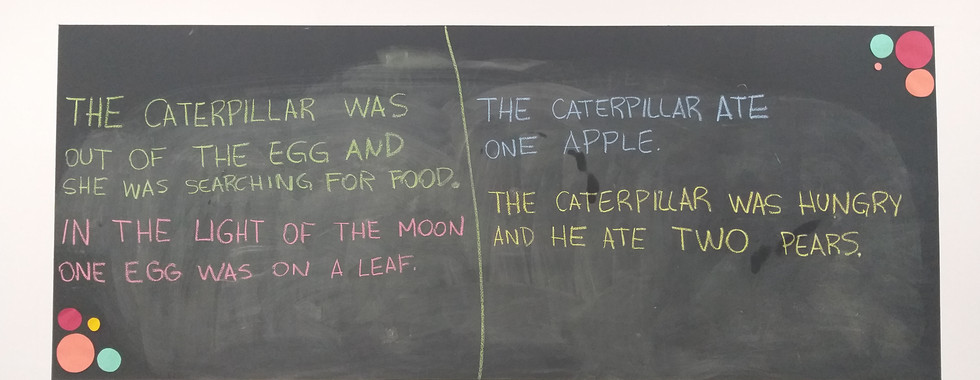 THE CATERPILLAR WAS
OUT OF THE EGG AND
SHE WAS SEARCHING FOR FOOD.
IN THE LIGHT OF THE MOON
ONE EGG WAS ON A LEAF.
THE CATERPILLAR ATE
ONE APPLE.
THE CATERPILLAR WAS HUNGRY
AND HE ATE TWO PEARS.